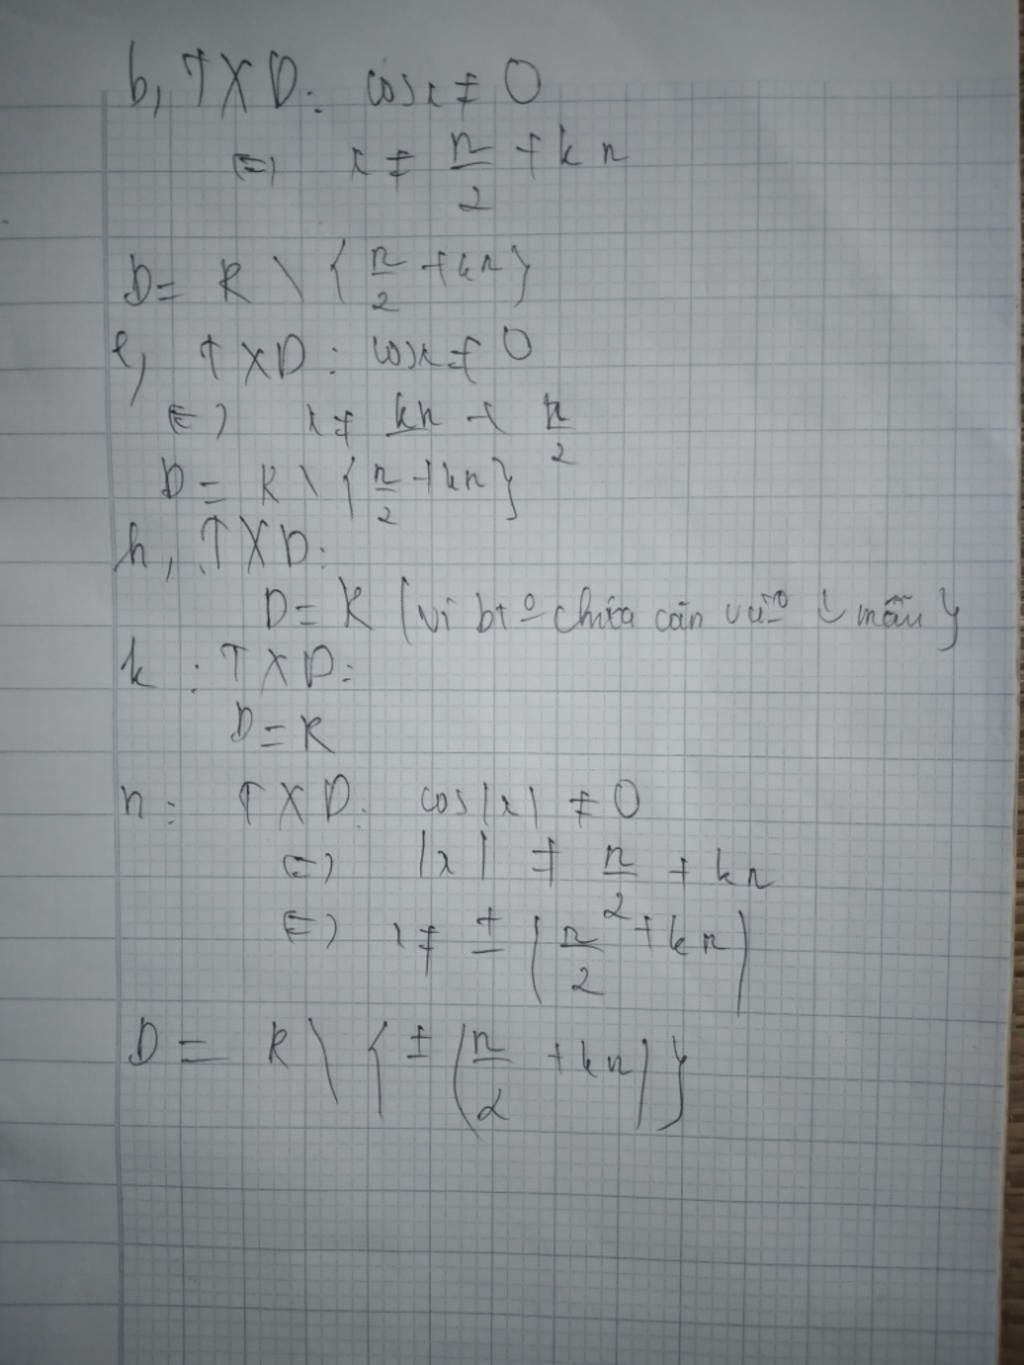 b, TXD: cosx ≠ 0
<=> x ≠ π/2 + kπ
D = R \ { π/2 + kπ }
e, TXD: cosx ≠ 0
<=> x ≠ kπ + π/2
D = R \ { π/2 + kπ }
h, TXD:
D = R (vì bt chứa căn mẫu }
k : TXD:
D = R
n : TXD: cos|x| ≠ 0
<=> |x| ≠ π/2 + kπ
<=> x ≠ ± ( π/2 + kπ )
D = R \ { ± ( π/2 + kπ ) }